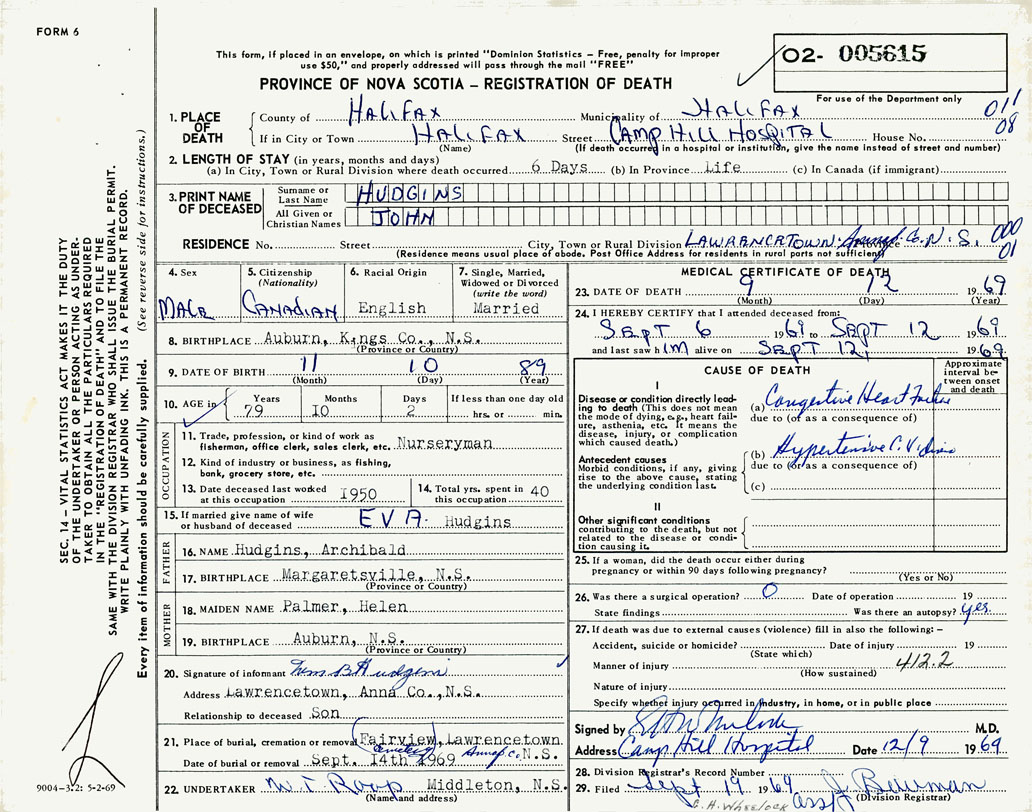 FORM 6
This form, if placed in an envelope, on which is printed "Dominion Statistics – Free, penalty for improper
use $50," and properly addressed will pass through the mail "FREE"
PROVINCE OF NOVA SCOTIA – REGISTRATION OF DEATH
O2- 005615
For use of the Department only
011
08
1. PLACE OF DEATH
County of HALIFAX Municipality of HALIFAX
If in City or Town HALIFAX Street CAMP HILL HOSPITAL House No.
(Name) (If death occurred in a hospital or institution, give the name instead of street and number)
2. LENGTH OF STAY (in years, months and days)
(a) In City, Town or Rural Division where death occurred 6 Days (b) In Province Life (c) In Canada (if immigrant)
3. PRINT NAME OF DECEASED
Surname or Last Name HUDGINS
All Given or Christian Names JOHN
RESIDENCE No. Street City, Town or Rural Division LAWRANCETOWN. Annap. Co. N.S. 000
01
(Residence means usual place of abode. Post Office Address for residents in rural parts not sufficient)
4. Sex
MALE
5. Citizenship
(Nationality)
CANADIAN
6. Racial Origin
English
7. Single, Married,
Widowed or Divorced
(write the word)
Married
8. BIRTHPLACE Auburn, Kings Co., N.S.
(Province or Country)
9. DATE OF BIRTH 11 10 89
(Month) (Day) (Year)
10. AGE in Years Months Days If less than one day old
79 10 2 hrs. or min.
OCCUPATION
11. Trade, profession, or kind of work as
fisherman, office clerk, sales clerk, etc. Nurseryman
12. Kind of industry or business, as fishing,
bank, grocery store, etc.
13. Date deceased last worked
at this occupation 1950
14. Total yrs. spent in
this occupation 40
15. If married give name of wife
or husband of deceased EVA. Hudgins
FATHER
16. NAME Hudgins, Archibald
17. BIRTHPLACE Margaretsville, N.S.
(Province or Country)
MOTHER
18. MAIDEN NAME Palmer, Helen
19. BIRTHPLACE Auburn, N.S.
(Province or Country)
20. Signature of informant Wm B Hudgins
Address Lawrencetown, Anna Co.,N.S.
Relationship to deceased Son
21. Place of burial, cremation or removal Fairview, Lawrencetown
cemetery Annap. C. N.S.
Date of burial or removal Sept. 14th 1969
22. UNDERTAKER W. T. Roop Middleton, N.S.
(Name and address)
MEDICAL CERTIFICATE OF DEATH
23. DATE OF DEATH 9 12 1969
(Month) (Day) (Year)
24. I HEREBY CERTIFY that I attended deceased from:
SEPT 6 1969 TO SEPT 12 1969
and last saw h IM alive on SEPT 12, 1969
CAUSE OF DEATH
Approximate
interval be-
tween onset
and death
I
Disease or condition directly lead-
ing to death (This does not mean
the mode of dying, e.g., heart fail-
ure, asthenia, etc. It means the
disease, injury, or complication
which caused death.)
(a) Congestive Heart Failure
due to (or as a consequence of)
Antecedent causes
Morbid conditions, if any, giving
rise to the above cause, stating
the underlying condition last.
(b) Hypertensive C. V. disease
due to (or as a consequence of)
(c)
II
Other significant conditions
contributing to the death, but not
related to the disease or condi-
tion causing it.
25. If a woman, did the death occur either during
pregnancy or within 90 days following pregnancy?
(Yes or No)
26. Was there a surgical operation? O Date of operation 19
State findings Was there an autopsy? yes
27. If death was due to external causes (violence) fill in also the following: –
Accident, suicide or homicide? Date of injury 19
(State which)
Manner of injury 412.2
(How sustained)
Nature of injury
Specify whether injury occurred in industry, in home, or in public place
Signed by M.D.
Address Camp Hill Hospital Date 12/9 1969
28. Division Registrar's Record Number
29. Filed Sept 19 1969 J. Bowman
(Division Registrar)
C. H. WHEELOCK ass't
SEC. 14 – VITAL STATISTICS ACT MAKES IT THE DUTY
OF THE UNDERTAKER OR PERSON ACTING AS UNDER-
TAKER TO OBTAIN ALL THE PARTICULARS REQUIRED
IN THE "REGISTRATION OF DEATH" AND TO FILE THE
SAME WITH THE DIVISION REGISTRAR WHO SHALL ISSUE THE BURIAL PERMIT.
WRITE PLAINLY WITH UNFADING INK. THIS IS A PERMANENT RECORD.
Every item of information should be carefully supplied. (See reverse side for instructions.)
9004-3.2: 5-2-69